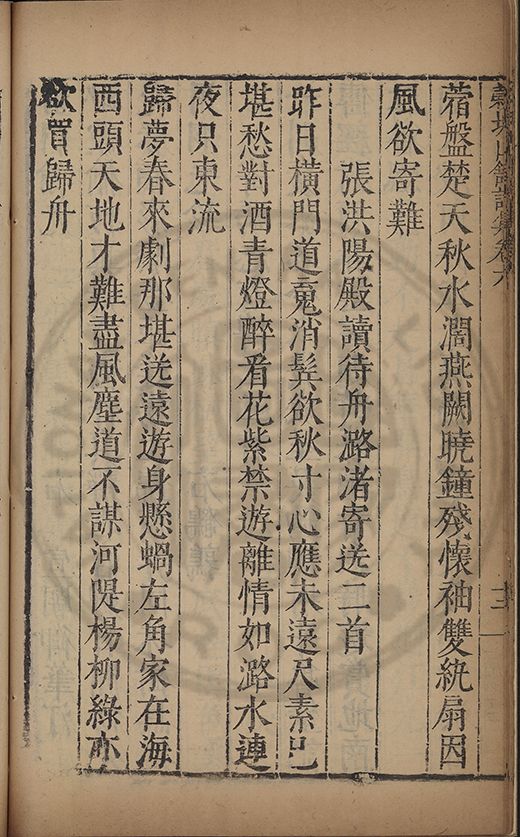 穀城山館詩集卷六 十二
蓿盤楚天秋水濶燕闕曉鐘殘懷袖雙紈扇因
風欲寄難
張洪陽殿讀待舟潞渚寄送二首
昨日橫門道䰟消髩欲秋寸心應未遠尺素已
堪愁對酒青燈醉看花紫禁遊離情如潞水連
夜只東流
歸夢春來劇那堪送遠遊身懸蝸左角家在海
西頭天地才難盡風塵道不謀河隄楊柳綠亦
欲買歸舟